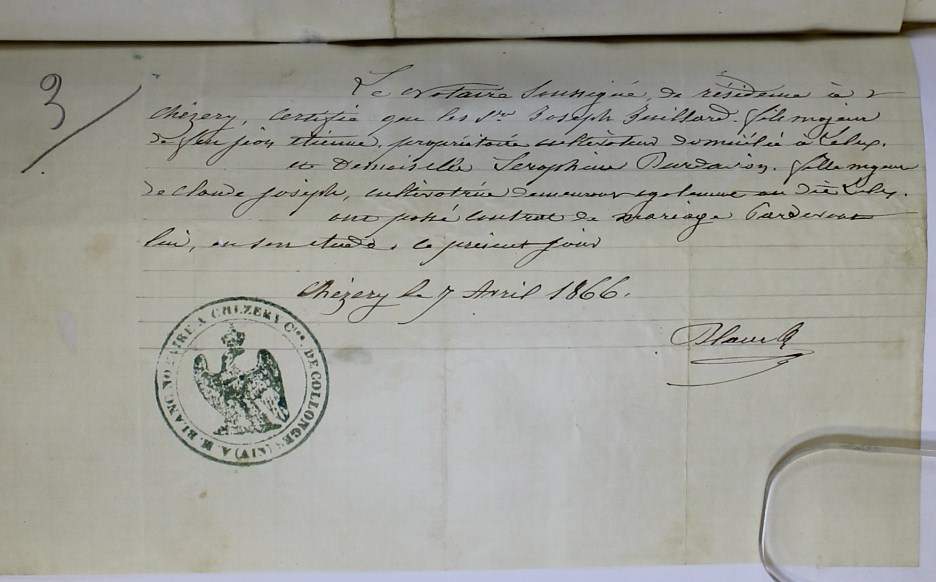 3
Le Notaire Soussigné, de résidence à
Chézery, certifie que les Sr Joseph Buillard. fils majeur
de feu jean étienne, propriétaire cultivateur domicilié à Lelex.
et Demoiselle Séraphine fille majeure
de claude joseph, cultivatrice demeurant également au dit Lelex.
ont passé contrat de mariage Pardevant
lui, en son étude, ce présent jour
Chézery le 7 Avril 1866.
Blanc
A. M. BLANC NOTAIRE A CHEZERY Con DE COLLONGES (AIN)